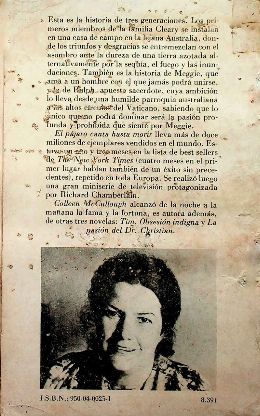 Esta es la historia de tres generaciones. Los pri-
meros miembros de la familia Cleary se instalan
en una casa de campo en la lejana Australia, don-
de los triunfos y desgracias se entremezclan con el
asombro ante la dureza de una tierra azotada al-
ternativamente por la sequía, el fuego y las inun-
daciones. También es la historia de Meggie, que
ama a un hombre con el que jamás podrá unirse,
y la de Ralph, apuesto sacerdote, cuya ambición
lo lleva desde una humilde parroquia australiana
a los altos círculos del Vaticano, sabiendo que lo
único que no podrá dominar será la pasión pro-
funda y prohibida que siente por Meggie.
El pájaro canta hasta morir lleva más de doce
millones de ejemplares vendidos en el mundo. Es-
tuvo un año y tres meses en la lista de best sellers
de The New York Times (cuatro meses en el pri-
mer lugar hablan también de un éxito sin prece-
dentes), repetido en toda Europa. Se realizó luego
una gran miniserie de televisión protagonizada
por Richard Chamberlain.
Colleen McCullough alcanzó de la noche a la
mañana la fama y la fortuna, es autora además,
de otras tres novelas: Tim, Obsesión indigna y La
pasión del Dr. Christian.
I.S.B.N.: 950-04-0025-1
8.391